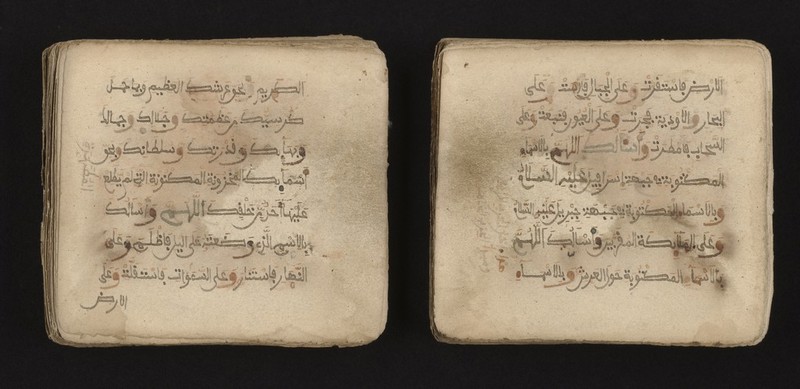 الكريم وبحق عرشك العظيم وبما حمل
كرسيك من عظمتك وجلالك وجمالك
وبهائك وقدرتك وسلطانك وبحق
أسمائك المخزونة المكنونة التي لم يطلع
عليها أحد من خلقك اللهم وأسألك
بالاسم الذي وضعته على الليل فأظلم وعلى
النهار فاستنار وعلى السموات فاستقلت وعلى
الأرض
الأرض فاستقرت وعلى الجبال فأرست وعلى
البحار والأودية فجرت وعلى العيون فنبعت وعلى
السحاب فأمطرت وأسألك اللهم بالأسماء
المكتوبة في جبهة إسرافيل عليه السلام
وبالأسماء المكتوبة في جبهة جبريل عليه السلام
وعلى الملائكة المقربين وأسألك اللهم
بالأسماء المكتوبة حول العرش وبالأسماء